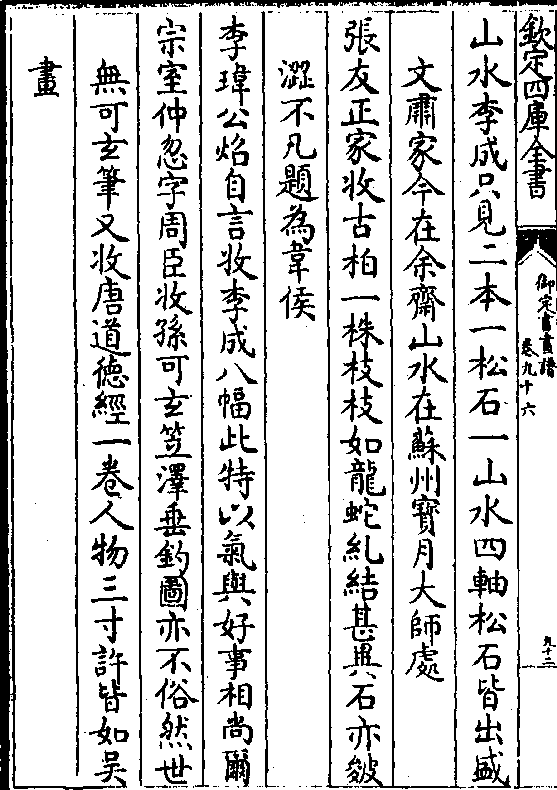 欽定四庫全書
御定書畫譜
卷九十六
九十三
山水李成只見二本一松石一山水四軸松石皆出盛
文肅家今在余齋山水在蘇州寶月大師處
張友正家收古柏一株枝枝如龍蛇糺結甚異石亦皴
澀不凡題為韋侯
李瑋公炤自言收李成八幅此特以氣與好事相尚爾
宗室仲忽字周臣收孫可玄笠澤垂釣圖亦不俗然世
無可玄筆又收唐道德經一卷人物三寸許皆如吳
畫